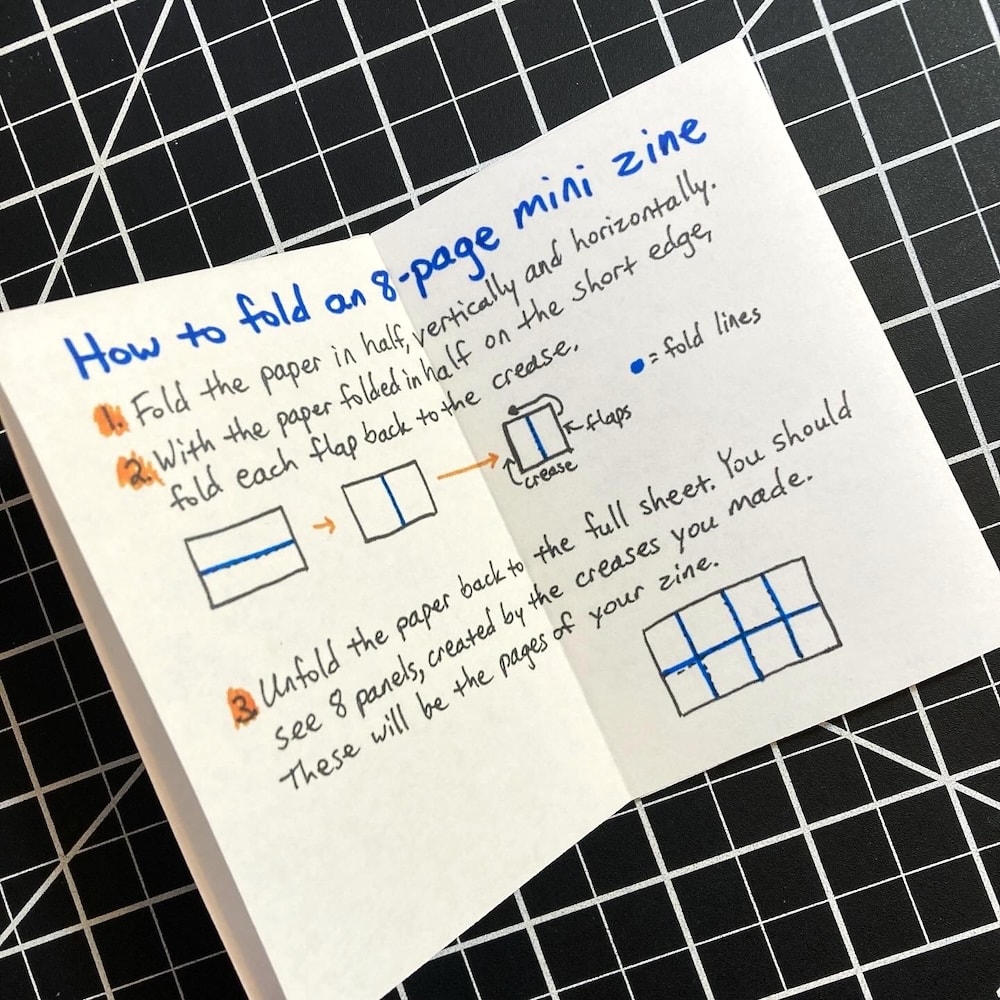 How to fold an 8-page mini zine
1. Fold the paper in half, vertically and horizontally.
2. With the paper folded in half on the short edge,
fold each flap back to the crease.
• = fold lines
flaps
crease
3. Unfold the paper back to the full sheet. You should
see 8 panels, created by the creases you made.
These will be the pages of your zine.